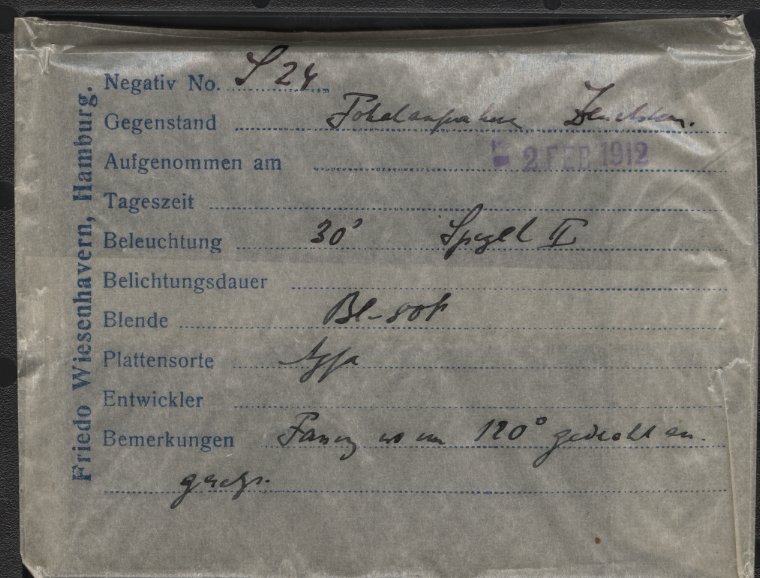 Friedo Wiesenhavern, Hamburg.
Negativ No. S 24
Gegenstand Fokalaufnahme
Aufgenommen am 2 FEB 1912
Tageszeit
Beleuchtung 30' Spiegel II
Belichtungsdauer
Blende Bl-rot
Plattensorte Agfa
Entwickler
Bemerkungen 120° gedreht an